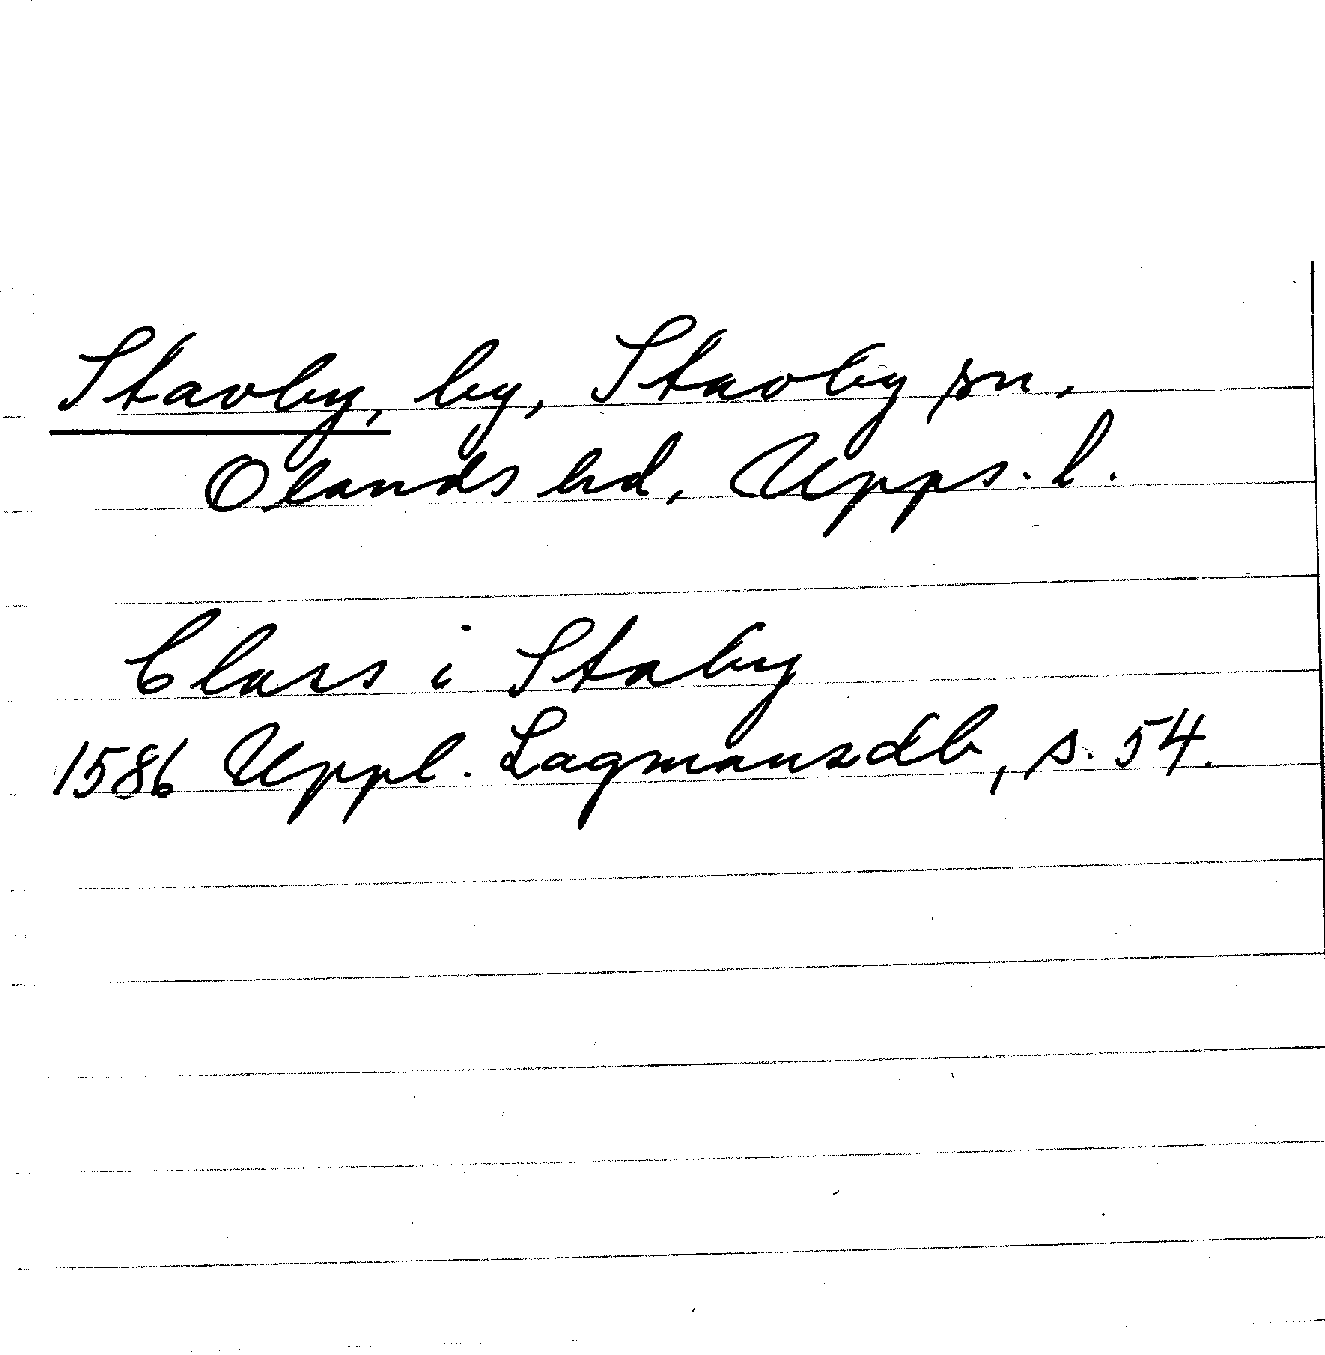 Stavby, by, Stavby sn,
Olands hd, Upps. l.
Clars i Staby
1586 Uppl. Lagmansdb, s. 54.